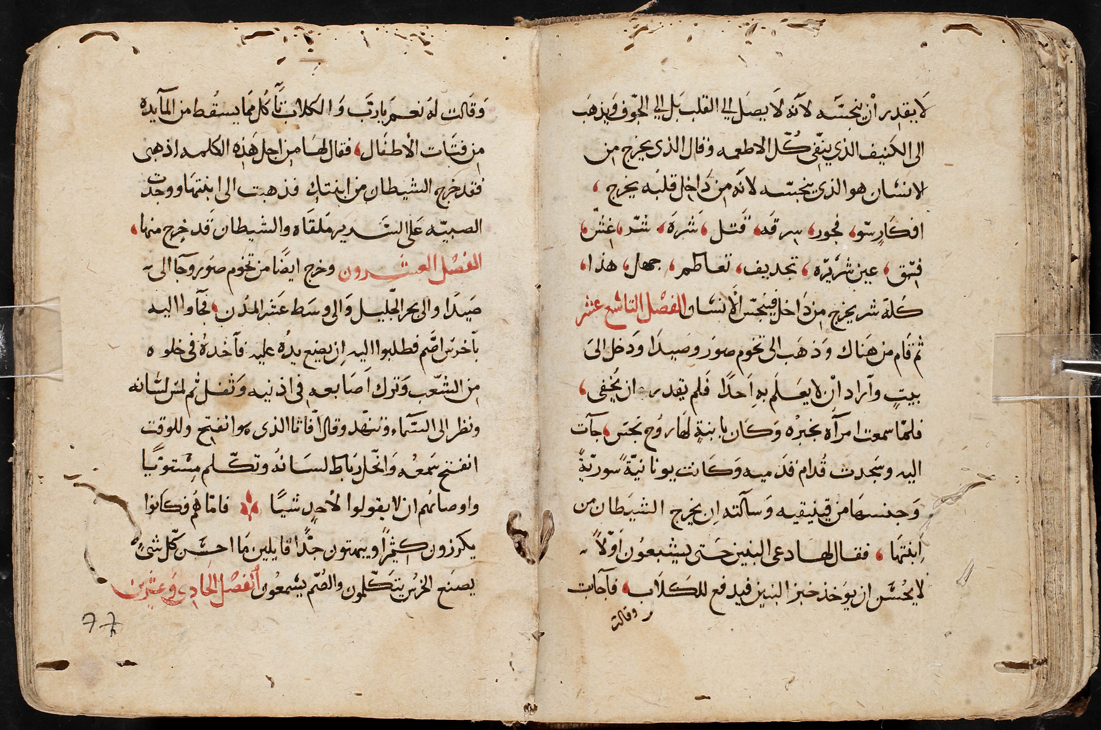 لا يقدر ان ينجسه لانه لا يصل الى القلب بل الى الجوف ويذهب
الى الكنيف الذي ينقى كل الاطعمه وقال الذى يخرج من
الانسان هو الذى ينجسه لانه من داخل قلبه يخرج
افكار سو فجور سرقه قتل شره شر غش
فسق عين شريره تجديف تعاظم جهل هذا
كله شر يخرج من داخل فينجس الانسان الفصل التاسع عشر
ثم قام من هناك وذهب الى تخوم صور وصيدا ودخل الى
بيت واراد ان لا يعلم به احدا فلم يقدر ان يخفى
فلما سمعت امرأه بخبره وكان بابنة لها روح نجس جآت
اليه وسجدت قدام قدميه وكانت يونانية سورية
وجنسها من فينيقيه وسالته ان يخرج الشيطان من
ابنتها فقال لها دعى البنين حتى يشبعون اولاً
لا يحسن ان يوخذ خبز البنين فيدفع للكلاب فاجابت
وقالت
وقالت له نعم يارب والكلاب تأكل مما يسقط من المآيده
من فتات الاطفال فقال لها من اجل هذه الكلمه اذهبى
فقد خرج الشيطان من ابنتك فذهبت الى ابنتها ووجدت
الصبيه على السرير ملقاه والشيطان قد خرج منها
الفصل العشرون وخرج ايضًا من تخوم صور وجا الى
صيدا والى بحر الجليل والى وسط عشر المدن فجآوا اليه
باخرس اصم فطلبوا اليه ان يضع يده عليه فاخده فى خلوه
من الشعب وترك اصابعه فى اذنيه وتفل ثم لمس لسانه
ونظر الى السماء وتنهد وقال افاتا الذى هو انفتح وللوقت
انفتح سمعه وانحل رباط لسانه وتكلم مستويًا
واوصاهم ان لا يقولوا لاحدٍ شيًا فاما هم فكانوا
يكرزون كثيرًا ويبهتون جدًا قايلين ما احسن كل شى
يصنع الخرس يتكلمون والصم يسمعون الفصل الحادى وعشرين